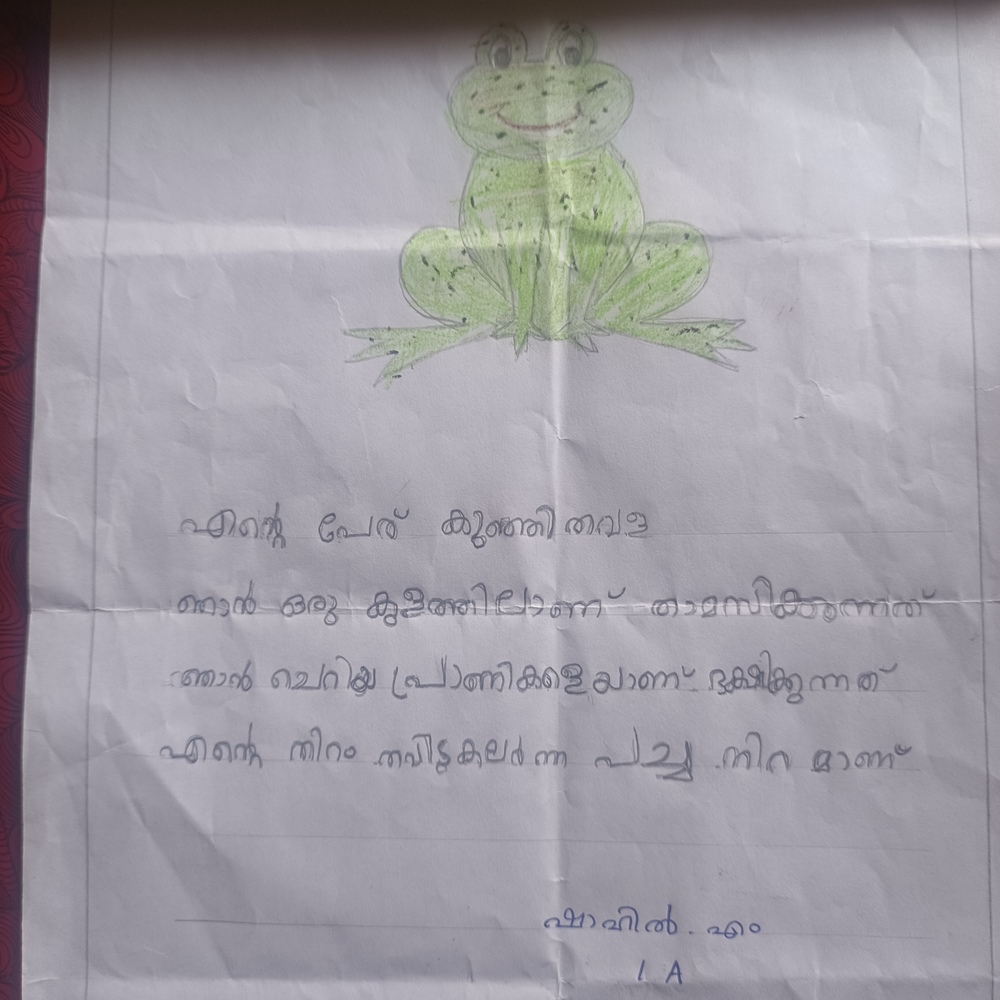 എന്റെ പേര് കുഞ്ഞി തവള
ഞാൻ ഒരു കുളത്തിലാണ് താമസിക്കുന്നത്
ഞാൻ ചെറിയ പ്രാണികളെയാണ് ഭക്ഷിക്കുന്നത്
എന്റെ നിറം തവിട്ടുകലർന്ന പച്ച നിറ മാണ്
ഷാഹിൽ. എം
1 A